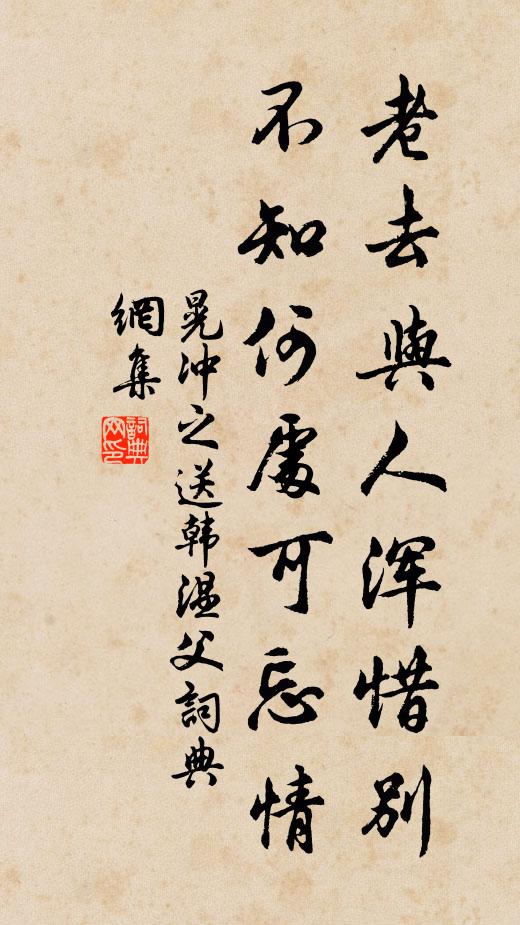 老去與人浑惜别
不知何處可忘情
晁冲之送韩温父詞典
網集
詞典网印